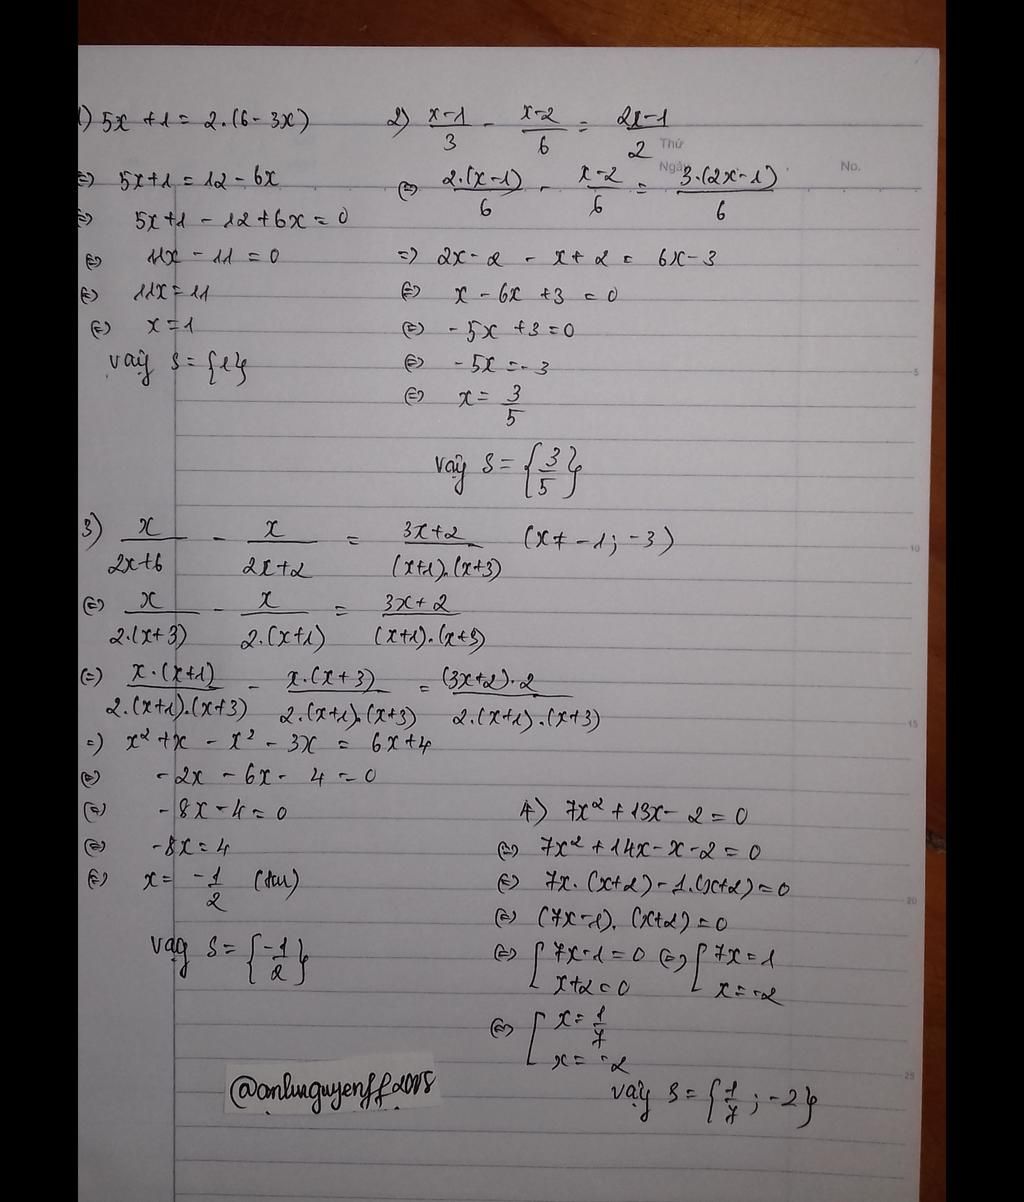 1) 5x + 1 = 2.(6 - 3x)
⇔ 5x+1 = 12 - 6x
⇔ 5x+1 - 12 + 6x = 0
⇔ 11x - 11 = 0
⇔ 11x = 11
⇔ x = 1
vậy S = {1}
2) \frac{x-1}{3} - \frac{x-2}{6} = \frac{2x-1}{2}
Thứ
Ngày
No.
⇔ \frac{2.(x-1)}{6} - \frac{x-2}{6} = \frac{3.(2x-1)}{6}
⇒ 2x - 2 - x + 2 = 6x - 3
⇔ x - 6x + 3 = 0
⇔ -5x + 3 = 0
⇔ -5x = -3
⇔ x = \frac{3}{5}
vậy S = {\frac{3}{5}}
3) \frac{x}{2x+6} - \frac{x}{2x+2} = \frac{3x+2}{(x+1).(x+3)} (x ≠ -1; -3)
⇔ \frac{x}{2.(x+3)} - \frac{x}{2.(x+1)} = \frac{3x+2}{(x+1).(x+3)}
⇔ \frac{x.(x+1)}{2.(x+1).(x+3)} - \frac{x.(x+3)}{2.(x+1).(x+3)} = \frac{(3x+2).2}{2.(x+1).(x+3)}
⇒ x² + x - x² - 3x = 6x + 4
⇔ -2x - 6x - 4 = 0
⇔ -8x - 4 = 0
⇔ -8x = 4
⇔ x = \frac{-1}{2}
vậy S = {\frac{-1}{2}}
4) 7x² + 13x - 2 = 0
⇔ 7x² + 14x - x - 2 = 0
⇔ 7x.(x+2) - 1.(x+2) = 0
⇔ (7x-1).(x+2) = 0
⇔ [ 7x-1 = 0 ⇔ [ 7x = 1
x+2 = 0 x = -2
⇔ [ x = \frac{1}{7}
x = -2
vậy S = {\frac{1}{7}; -2}
5
10
15
20
25